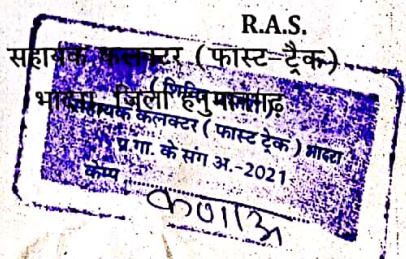 R.A.S.
सहायक कलक्टर (फास्ट-ट्रैक)
भादरा, जिला हनुमानगढ़
सहायक कलक्टर (फास्ट ट्रेक) भादरा
प्र.गा. के संग अ.-2021
कैम्प